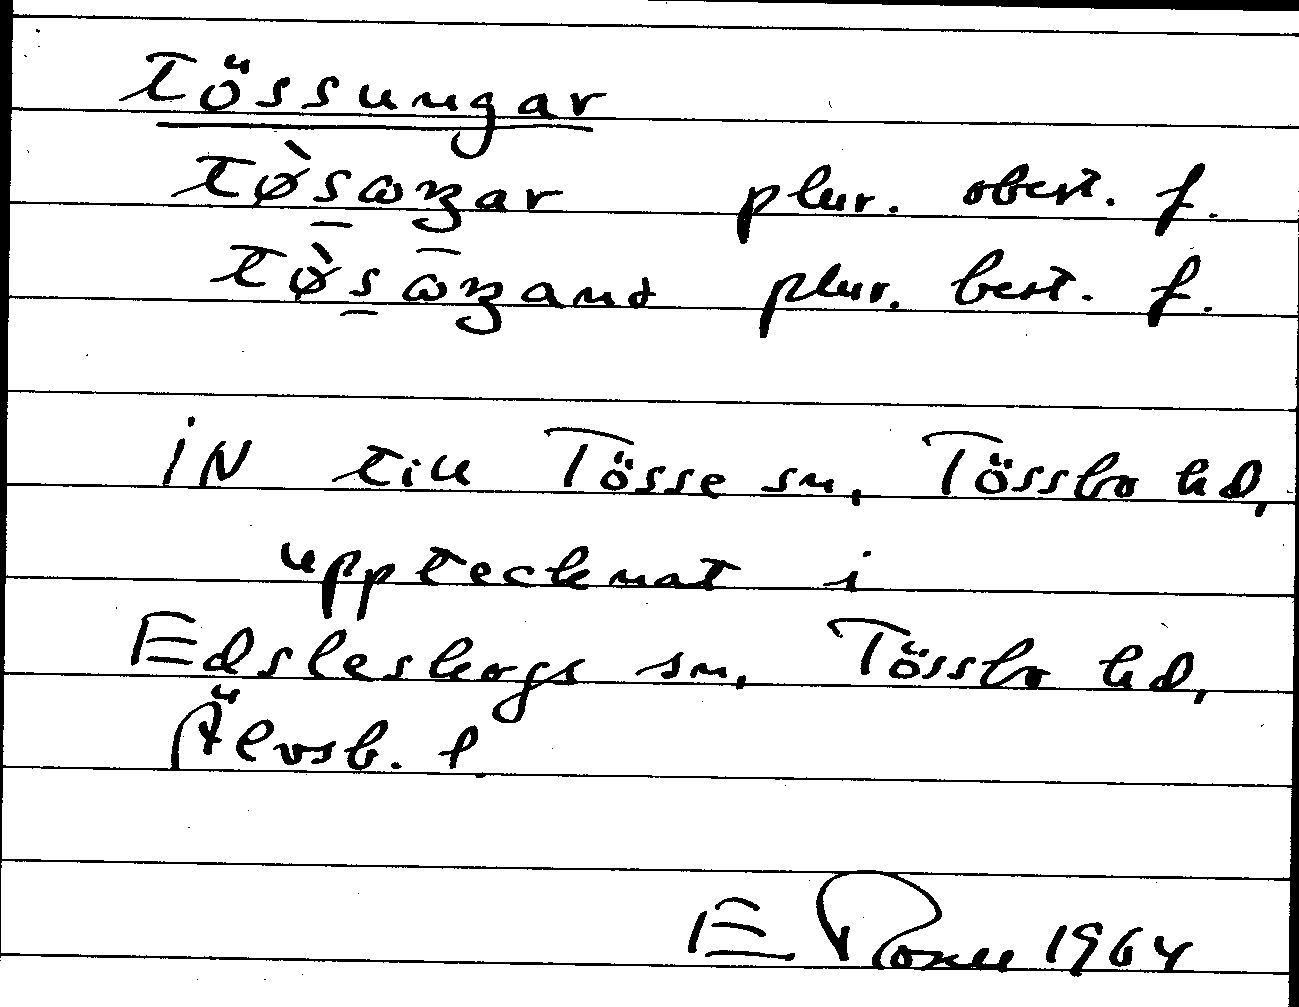 Tössungar
tø̀sωŋar plur. obest. f.
tø̀sωŋand plur. best. f.
iN till Tösse sn, Tössbo hd,
upptecknat i
Edsleskogs sn, Tössbo hd,
Älvsb. l.
E 1964